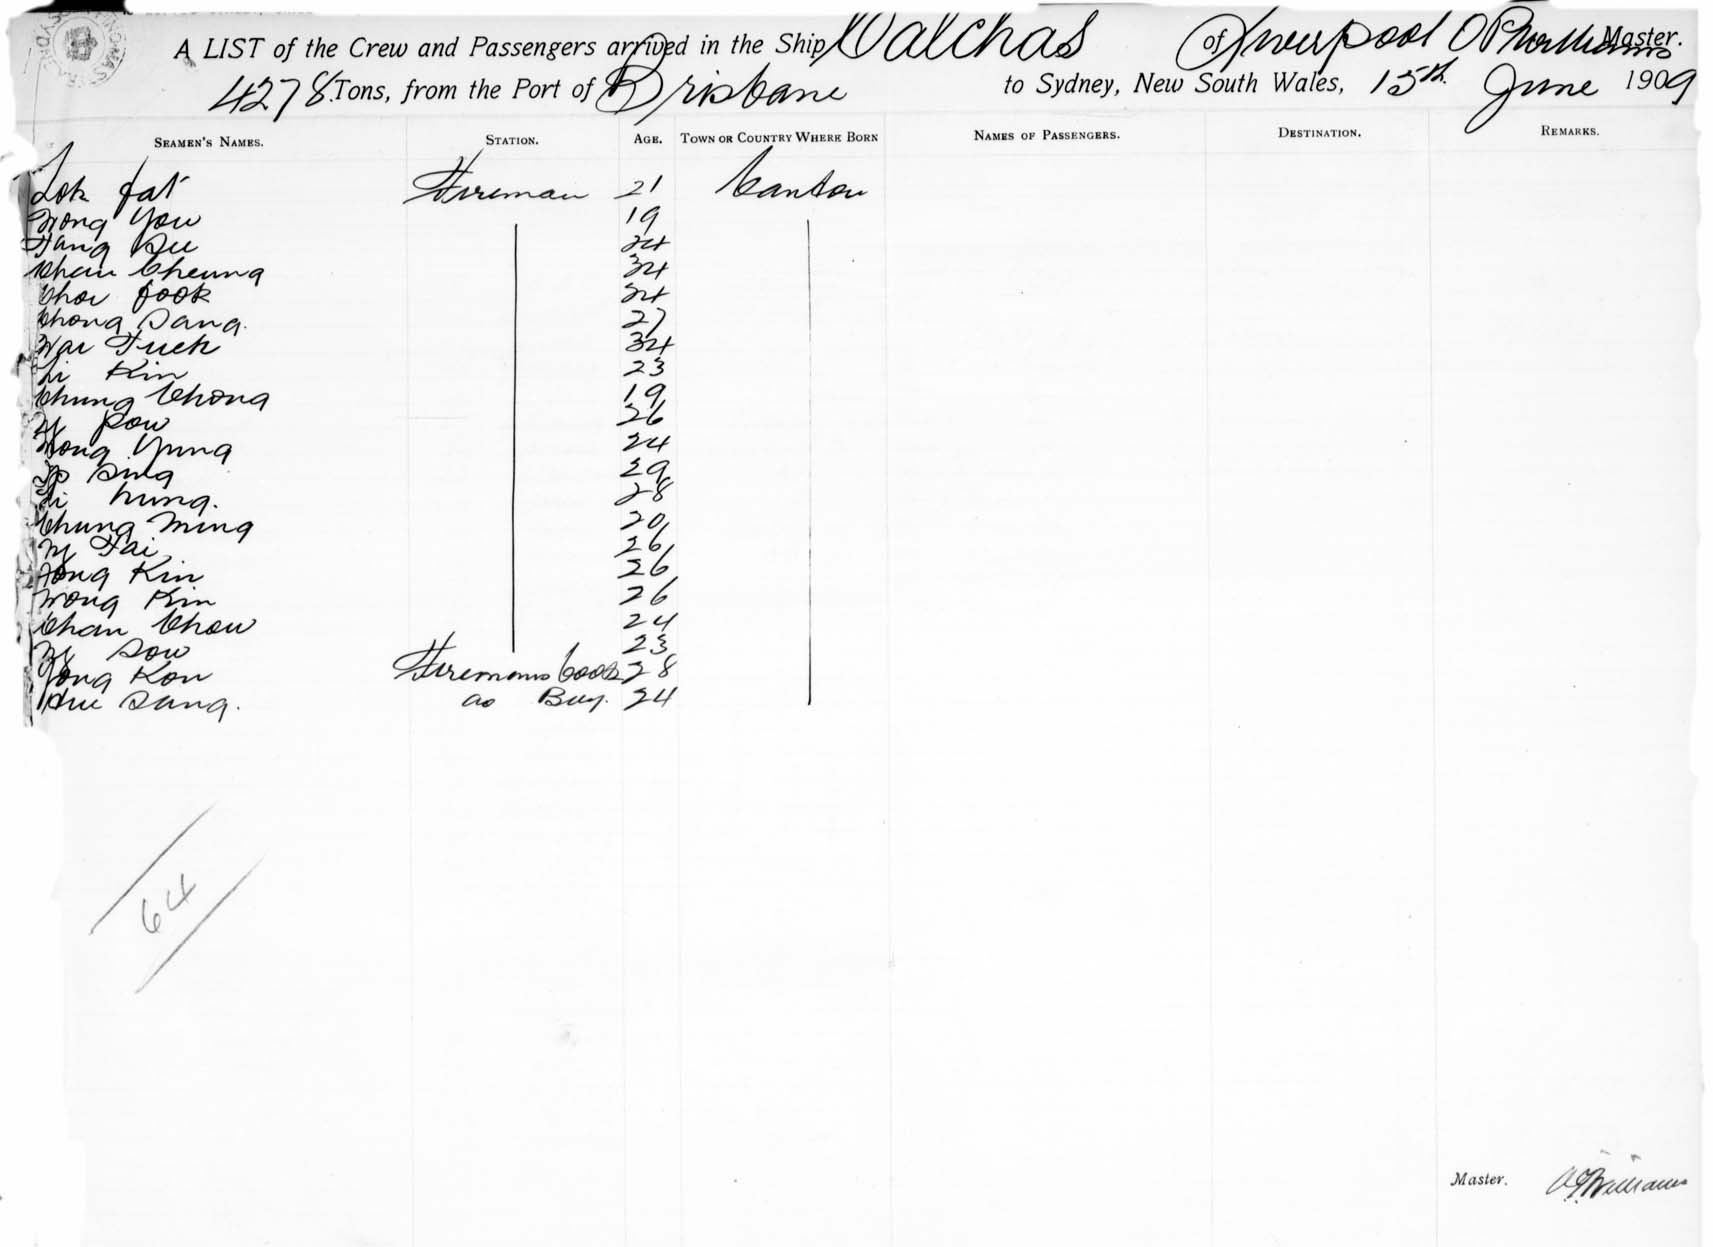 A LIST of the Crew and Passengers arrived in the Ship Calchas of Liverpool Master.
4278 Tons, from the Port of Brisbane to Sydney, New South Wales, 15th June 1909
SEAMEN'S NAMES. STATION. AGE. TOWN OR COUNTRY WHERE BORN NAMES OF PASSENGERS. DESTINATION. REMARKS.
Lok fat Fireman 21 Canton
Wong You 19
Tang Su 24
Chan Cheung 34
Choi fook 24
Chong Sang. 27
Wai Tuck 34
Li Kin 23
Chung Chong 19
Ng pow 26
Wong Yung 24
Ip Sing 29
Li hung. 28
Chung Ming 20
Ng Tai 26
Tong Kin 26
Wong Kin 26
Chan Chow 24
Ng Sow 23
Yong Kon Firemans Cook 28
Hui Sang. as Boy. 24
64
Master. Williams